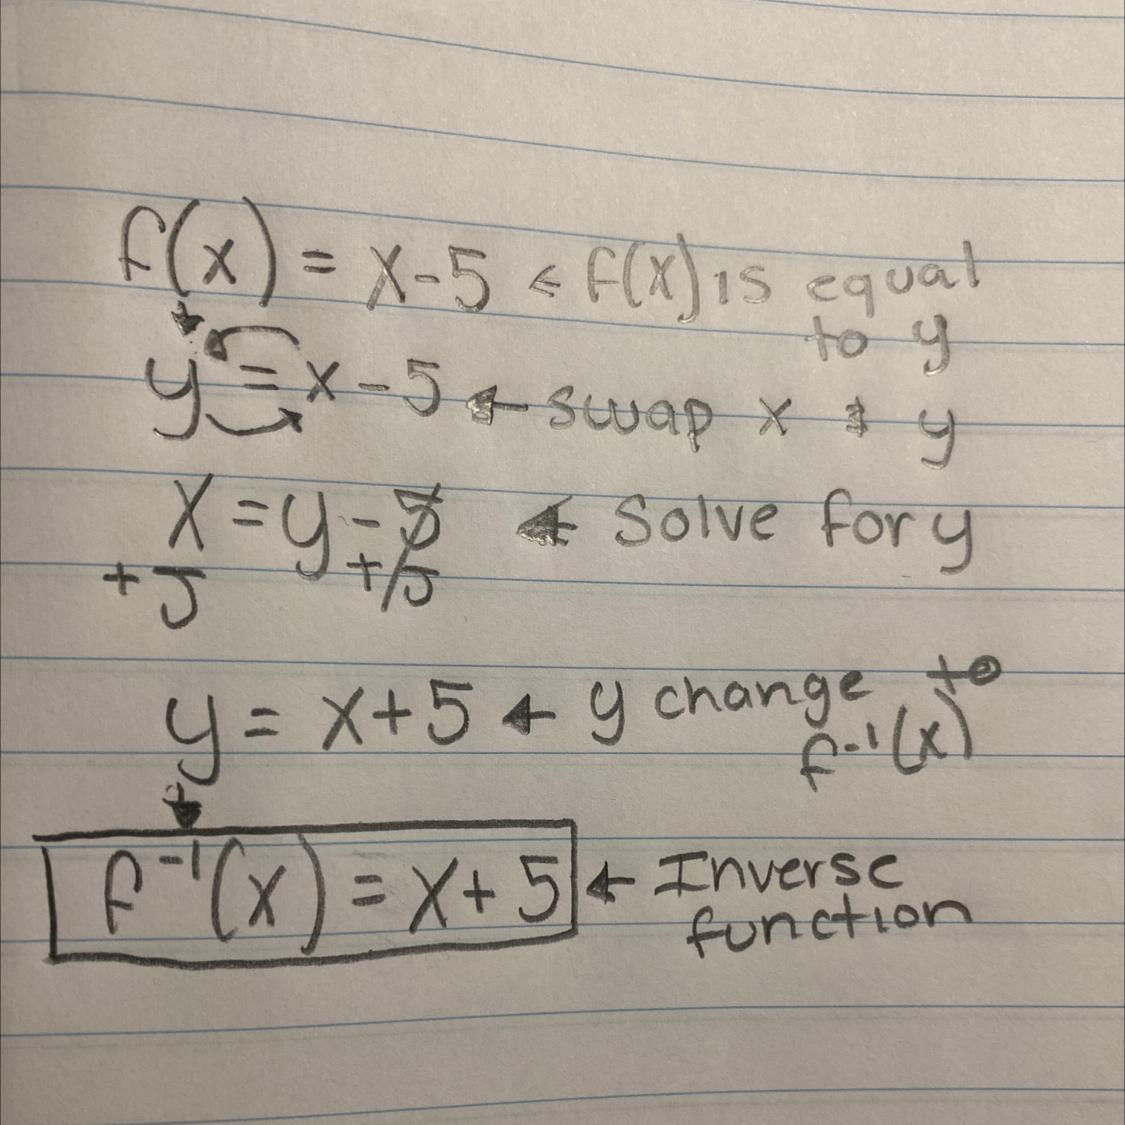 f(x) = x-5 ← f(x) is equal
to y
y = x-5 ← swap x & y
x = y-5 ← Solve for y
+5 +5
y = x+5 ← y change to
f⁻¹(x)
f⁻¹(x) = x+5 ← Inverse
function